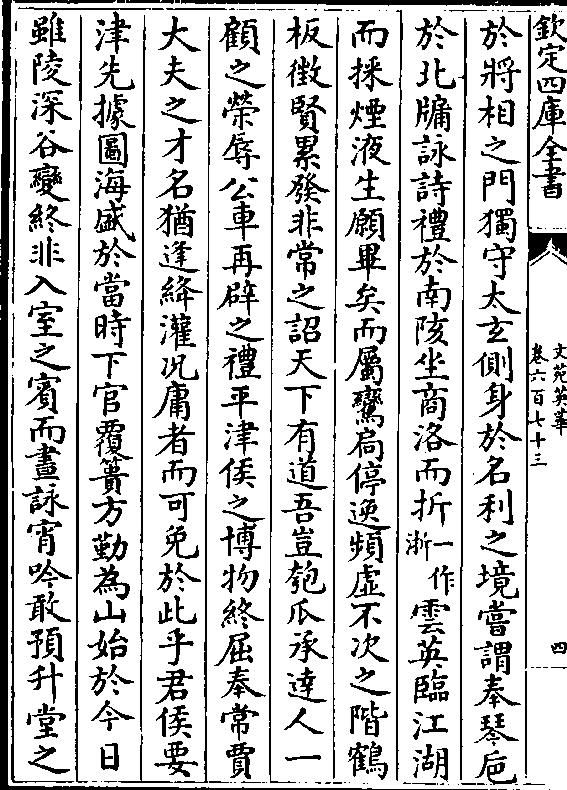 欽定四庫全書
文苑英華
卷六百七十三
四
於將相之門獨守太玄側身於名利之境嘗謂奉琴巵
於北牖詠詩禮於南陔坐商洛而折一作浙雲英臨江湖
而採煙液生願畢矣而屬鸞扃停逸頻虚不次之階鶴
板徴賢累發非常之詔天下有道吾豈匏瓜承達人一
顧之榮辱公車再辟之禮平津侯之博物終屈奉常賈
大夫之才名猶逢絳灌况庸者而可免於此乎君侯要
津先據圖海盛於當時下官覆簣方勤為山始於今日
雖陵深谷變終非入室之賓而晝詠宵吟敢預升堂之